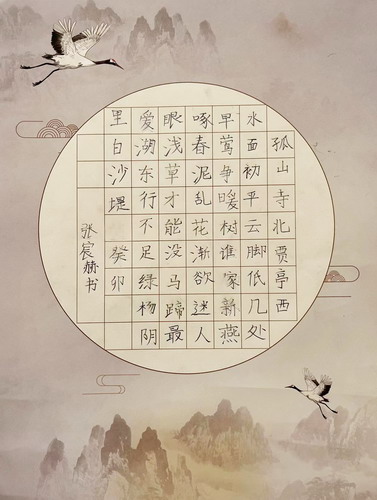 孤山寺北贾亭西
水面初平云脚低几处
早莺争暖树谁家新燕
啄春泥乱花渐欲迷人
眼浅草才能没马蹄最
爱湖东行不足绿杨阴
里白沙堤 癸卯
张宸赫书